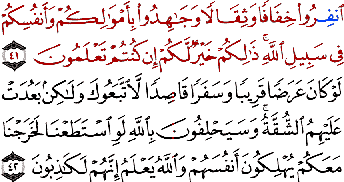 ٱنفِرُوا۟ خِفَافًا وَثِقَالًا وَجَٰهِدُوا۟ بِأَمْوَٰلِكُمْ وَأَنفُسِكُمْ
فِى سَبِيلِ ٱللَّهِ ۚ ذَٰلِكُمْ خَيْرٌ لَّكُمْ إِن كُنتُمْ تَعْلَمُونَ ٤١
لَوْ كَانَ عَرَضًا قَرِيبًا وَسَفَرًا قَاصِدًا لَّٱتَّبَعُوكَ وَلَٰكِنۢ بَعُدَتْ
عَلَيْهِمُ ٱلشُّقَّةُ ۚ وَسَيَحْلِفُونَ بِٱللَّهِ لَوِ ٱسْتَطَعْنَا لَخَرَجْنَا
مَعَكُمْ يُهْلِكُونَ أَنفُسَهُمْ وَٱللَّهُ يَعْلَمُ إِنَّهُمْ لَكَٰذِبُونَ ٤٢